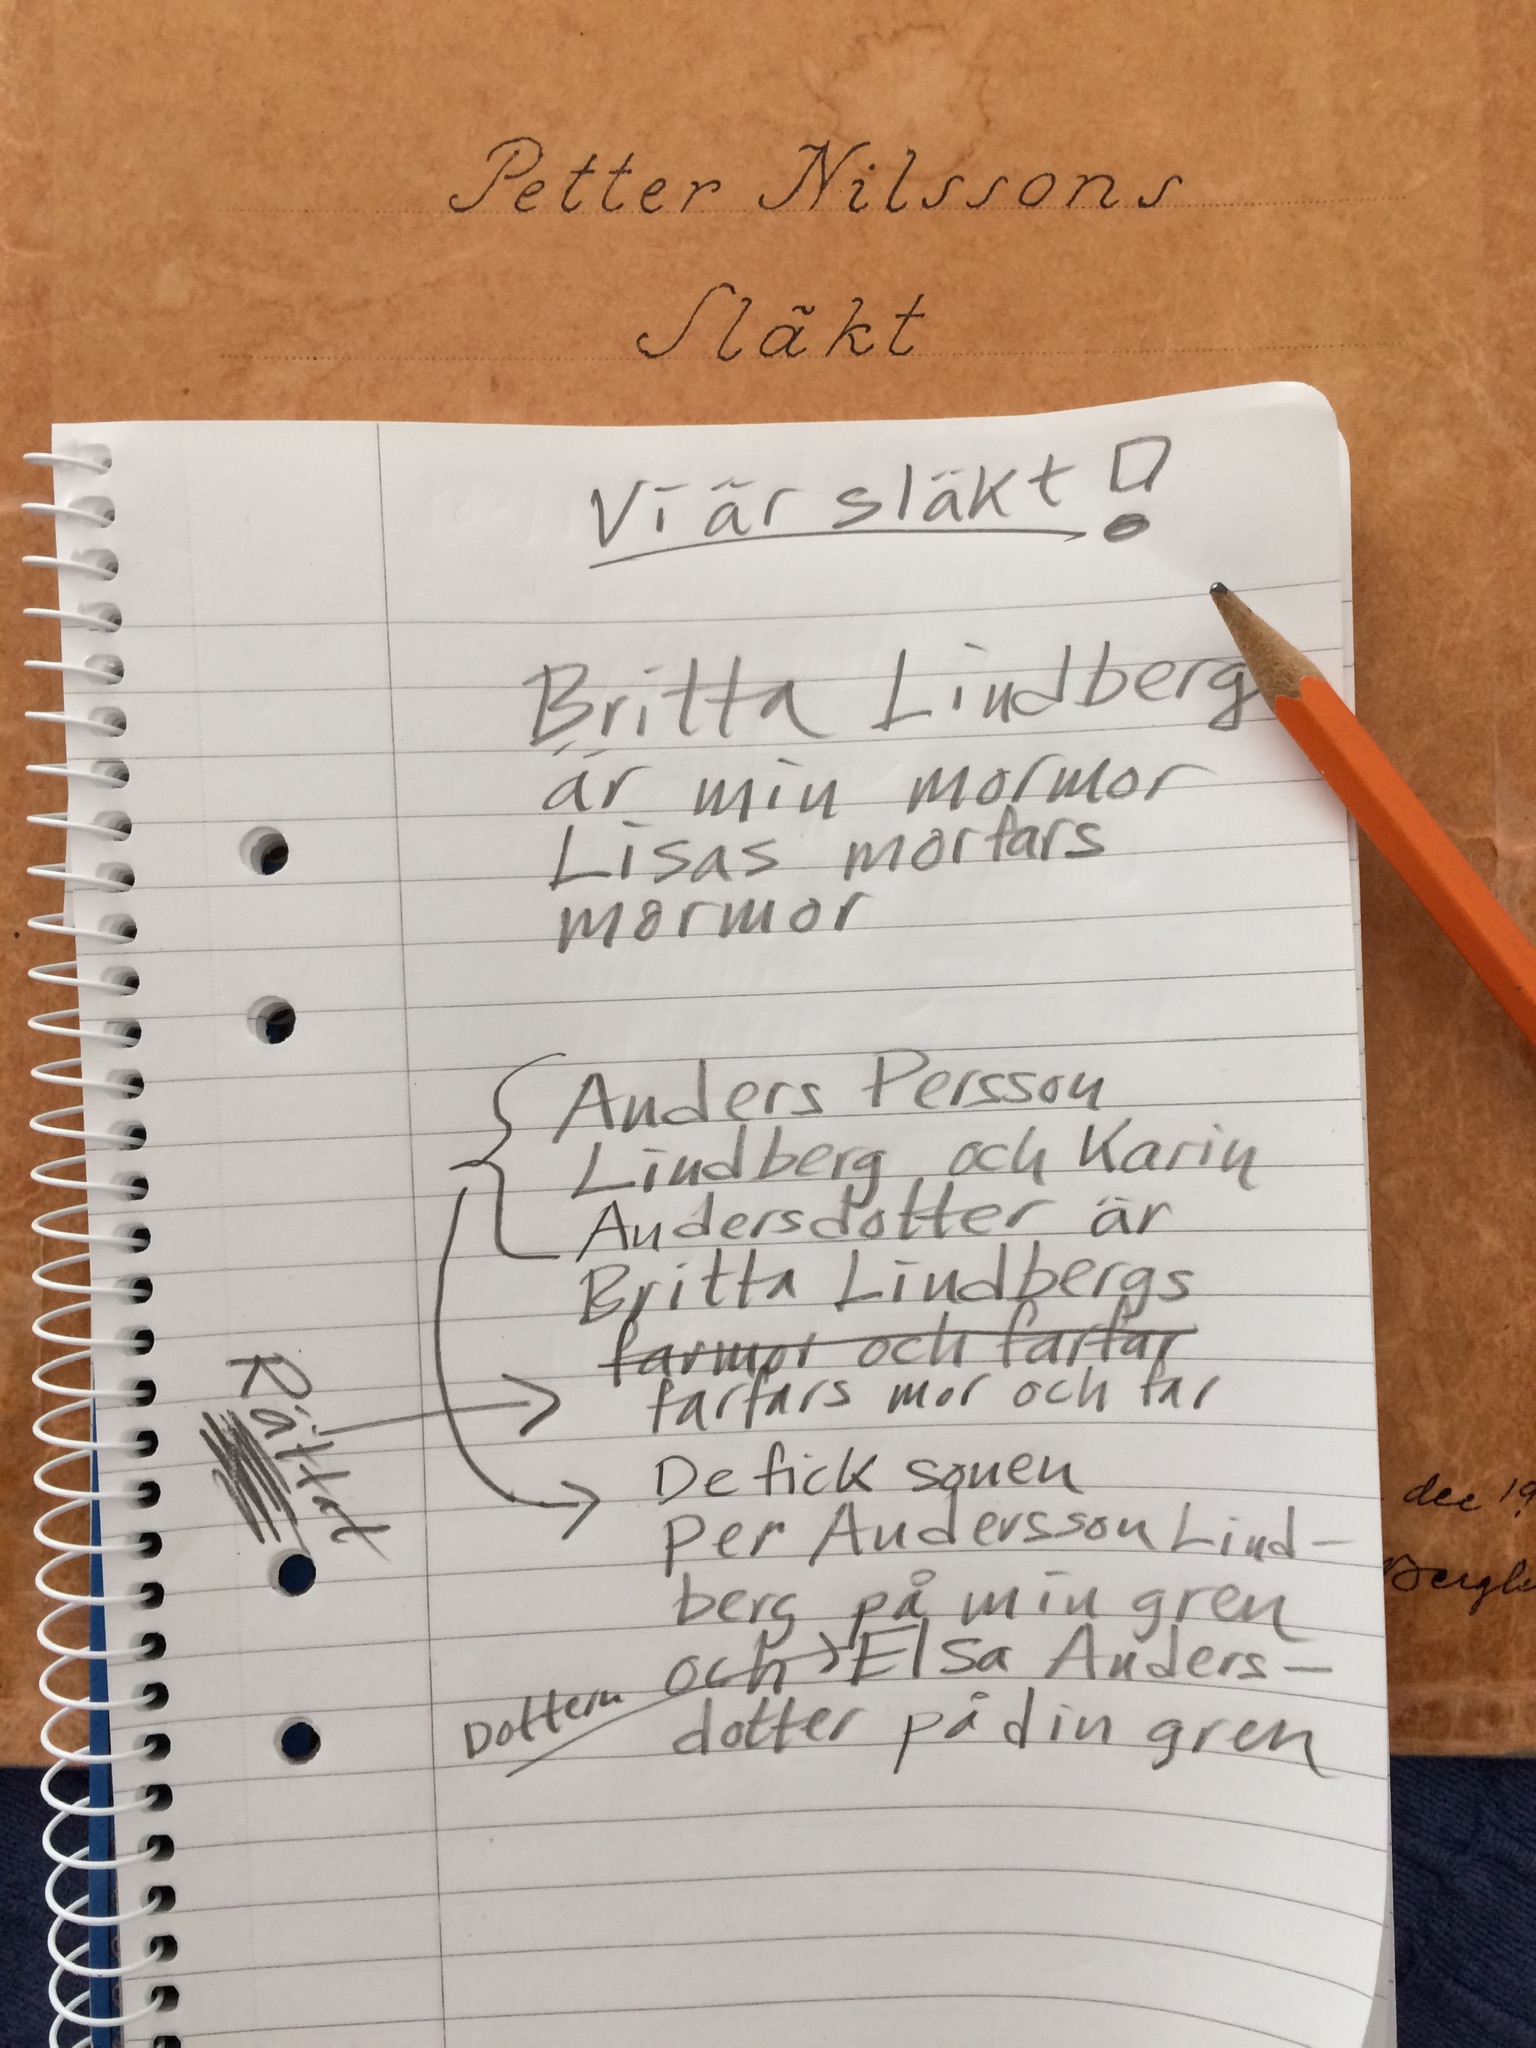 Petter Nilssons
Släkt
Vi är släkt!
Britta Lindberg
är min mormor
Lisas morfars
mormor
Anders Persson
Lindberg och Karin
Andersdotter är
Britta Lindbergs
farmor och farfar
farfars mor och far
Rättat
De fick sonen
Per Andersson Lind-
berg på min gren
och Elsa Anders-
Dottern
dotter på din gren
dec 19